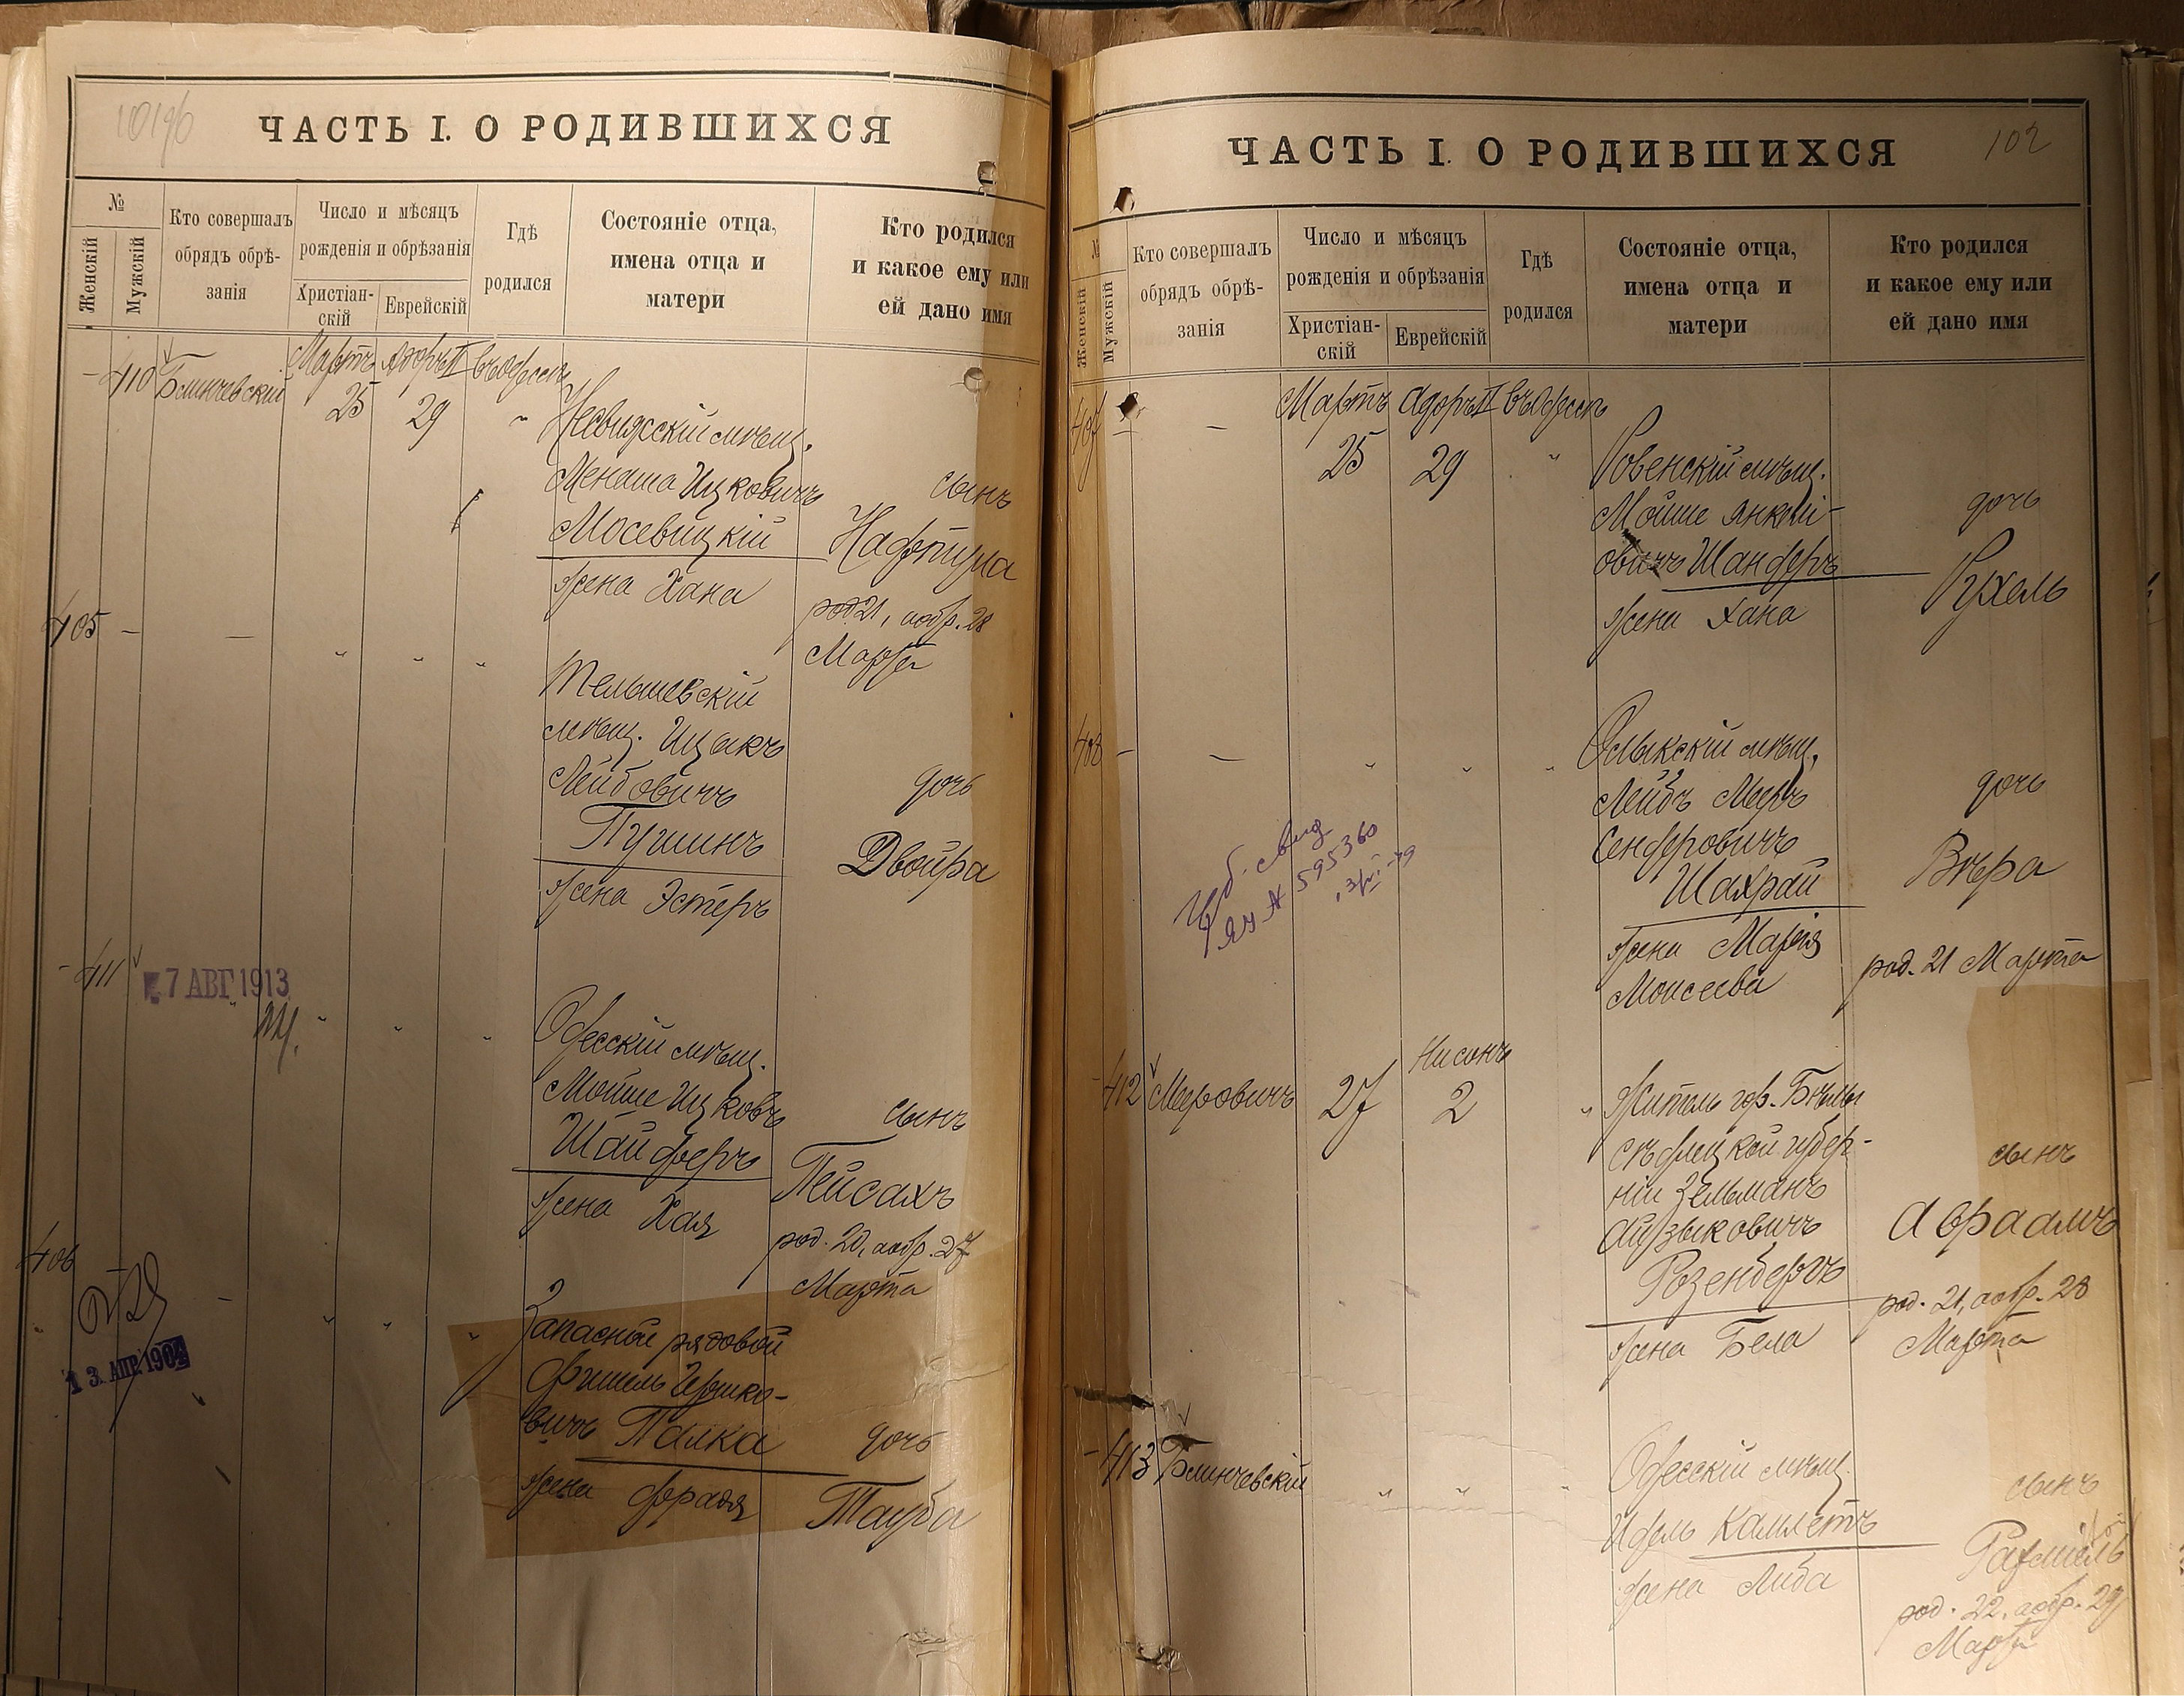 101об
ЧАСТЬ I. О РОДИВШИХСЯ
№
Женскій
Мужскій
Кто совершалъ
обрядъ обрѣ-
занія
Число и мѣсяцъ
рожденія и обрѣзанія
Христіан-
скій
Еврейскій
Гдѣ
родился
Состояніе отца,
имена отца и
матери
Кто родился
и какое ему или
ей дано имя
410 Блинчевский
Мартъ Адоръ II въ Одессѣ
25 29 "
мѣщ.
Менаша Ицковичъ
Мосевицкій
жена Хана
сынъ
Нафтула
род. 21, а обр. 28
Марта
405 — — " " "
Тельшевскій
мѣщ. Ицыкъ
Лейбовичъ
Пушинъ
жена Эстеръ
дочь
Двойра
411
7 АВГ 1913
" " " "
Одесскій мѣщ.
Мойше Ицковъ
Шайферъ
жена Хая
сынъ
Пейсахъ
род. 20, а обр. 27
Марта
406 — — " " "
13. АПР. 1904
Запасной рядовой
Фишель Гершко-
вичъ Палка
жена Фрадя
дочь
Тауба
102
ЧАСТЬ I. О РОДИВШИХСЯ
№
Женскій
Мужскій
Кто совершалъ
обрядъ обрѣ-
занія
Число и мѣсяцъ
рожденія и обрѣзанія
Христіан-
скій
Еврейскій
Гдѣ
родился
Состояніе отца,
имена отца и
матери
Кто родился
и какое ему или
ей дано имя
407 — —
Мартъ Адоръ II въ Одессѣ
25 29 "
Ровенскій мѣщ.
Мойше Янкели-
овичъ Шандеръ
жена Хана
дочь
Рухель
408 — — " " "
Олыкскій мѣщ.
Лейбъ Мееръ
Сендеровичъ
Шахрай
жена Марія
Моисеева
дочь
Вѣра
род. 21 Марта
свид
ЯУ № 595360
412 Меровичъ
27
Нисонъ
2 "
Житель гор. Бѣлы
Сѣдлецкой губер-
ніи Зельманъ
Айзыковичъ
Розенбергъ
жена Бела
сынъ
Авраамъ
род. 21, а обр. 28
Марта
413 Блинчевскій " " "
Одесскій мѣщ.
Идель Камлетъ
жена Либа
сынъ
Рахміель
род. 22, а обр. 29
Марта